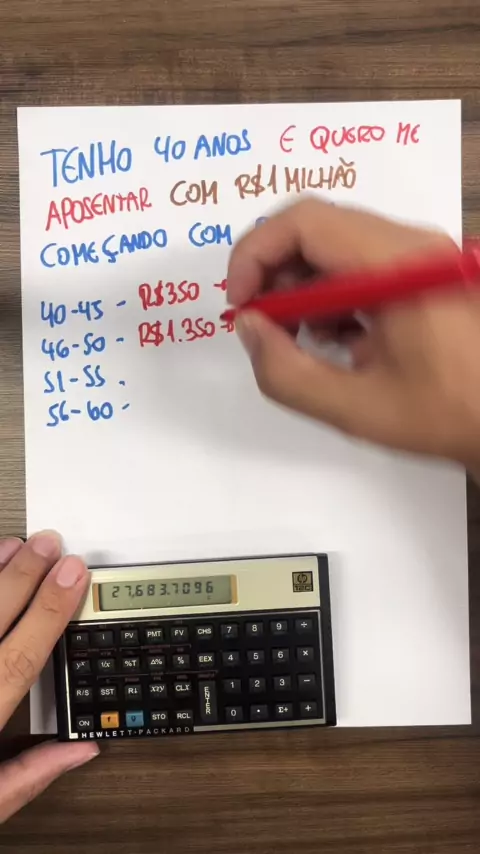 TENHO 40 ANOS E QUERO ME
APOSENTAR COM R$1 MILHÃO
COMEÇANDO COM
40-45 - R$350 →
46-50 - R$1.350 →
51-55 -
56-60 -
27,683.7096
hp
12C
n i PV PMT FV CHS 7 8 9 ÷
yˣ 1/x %T Δ% % EEX 4 5 6 ×
R/S SST R↓ x≷y CLx ENTER 1 2 3 −
ON f g STO RCL 0 . Σ+ +
HEWLETT·PACKARD